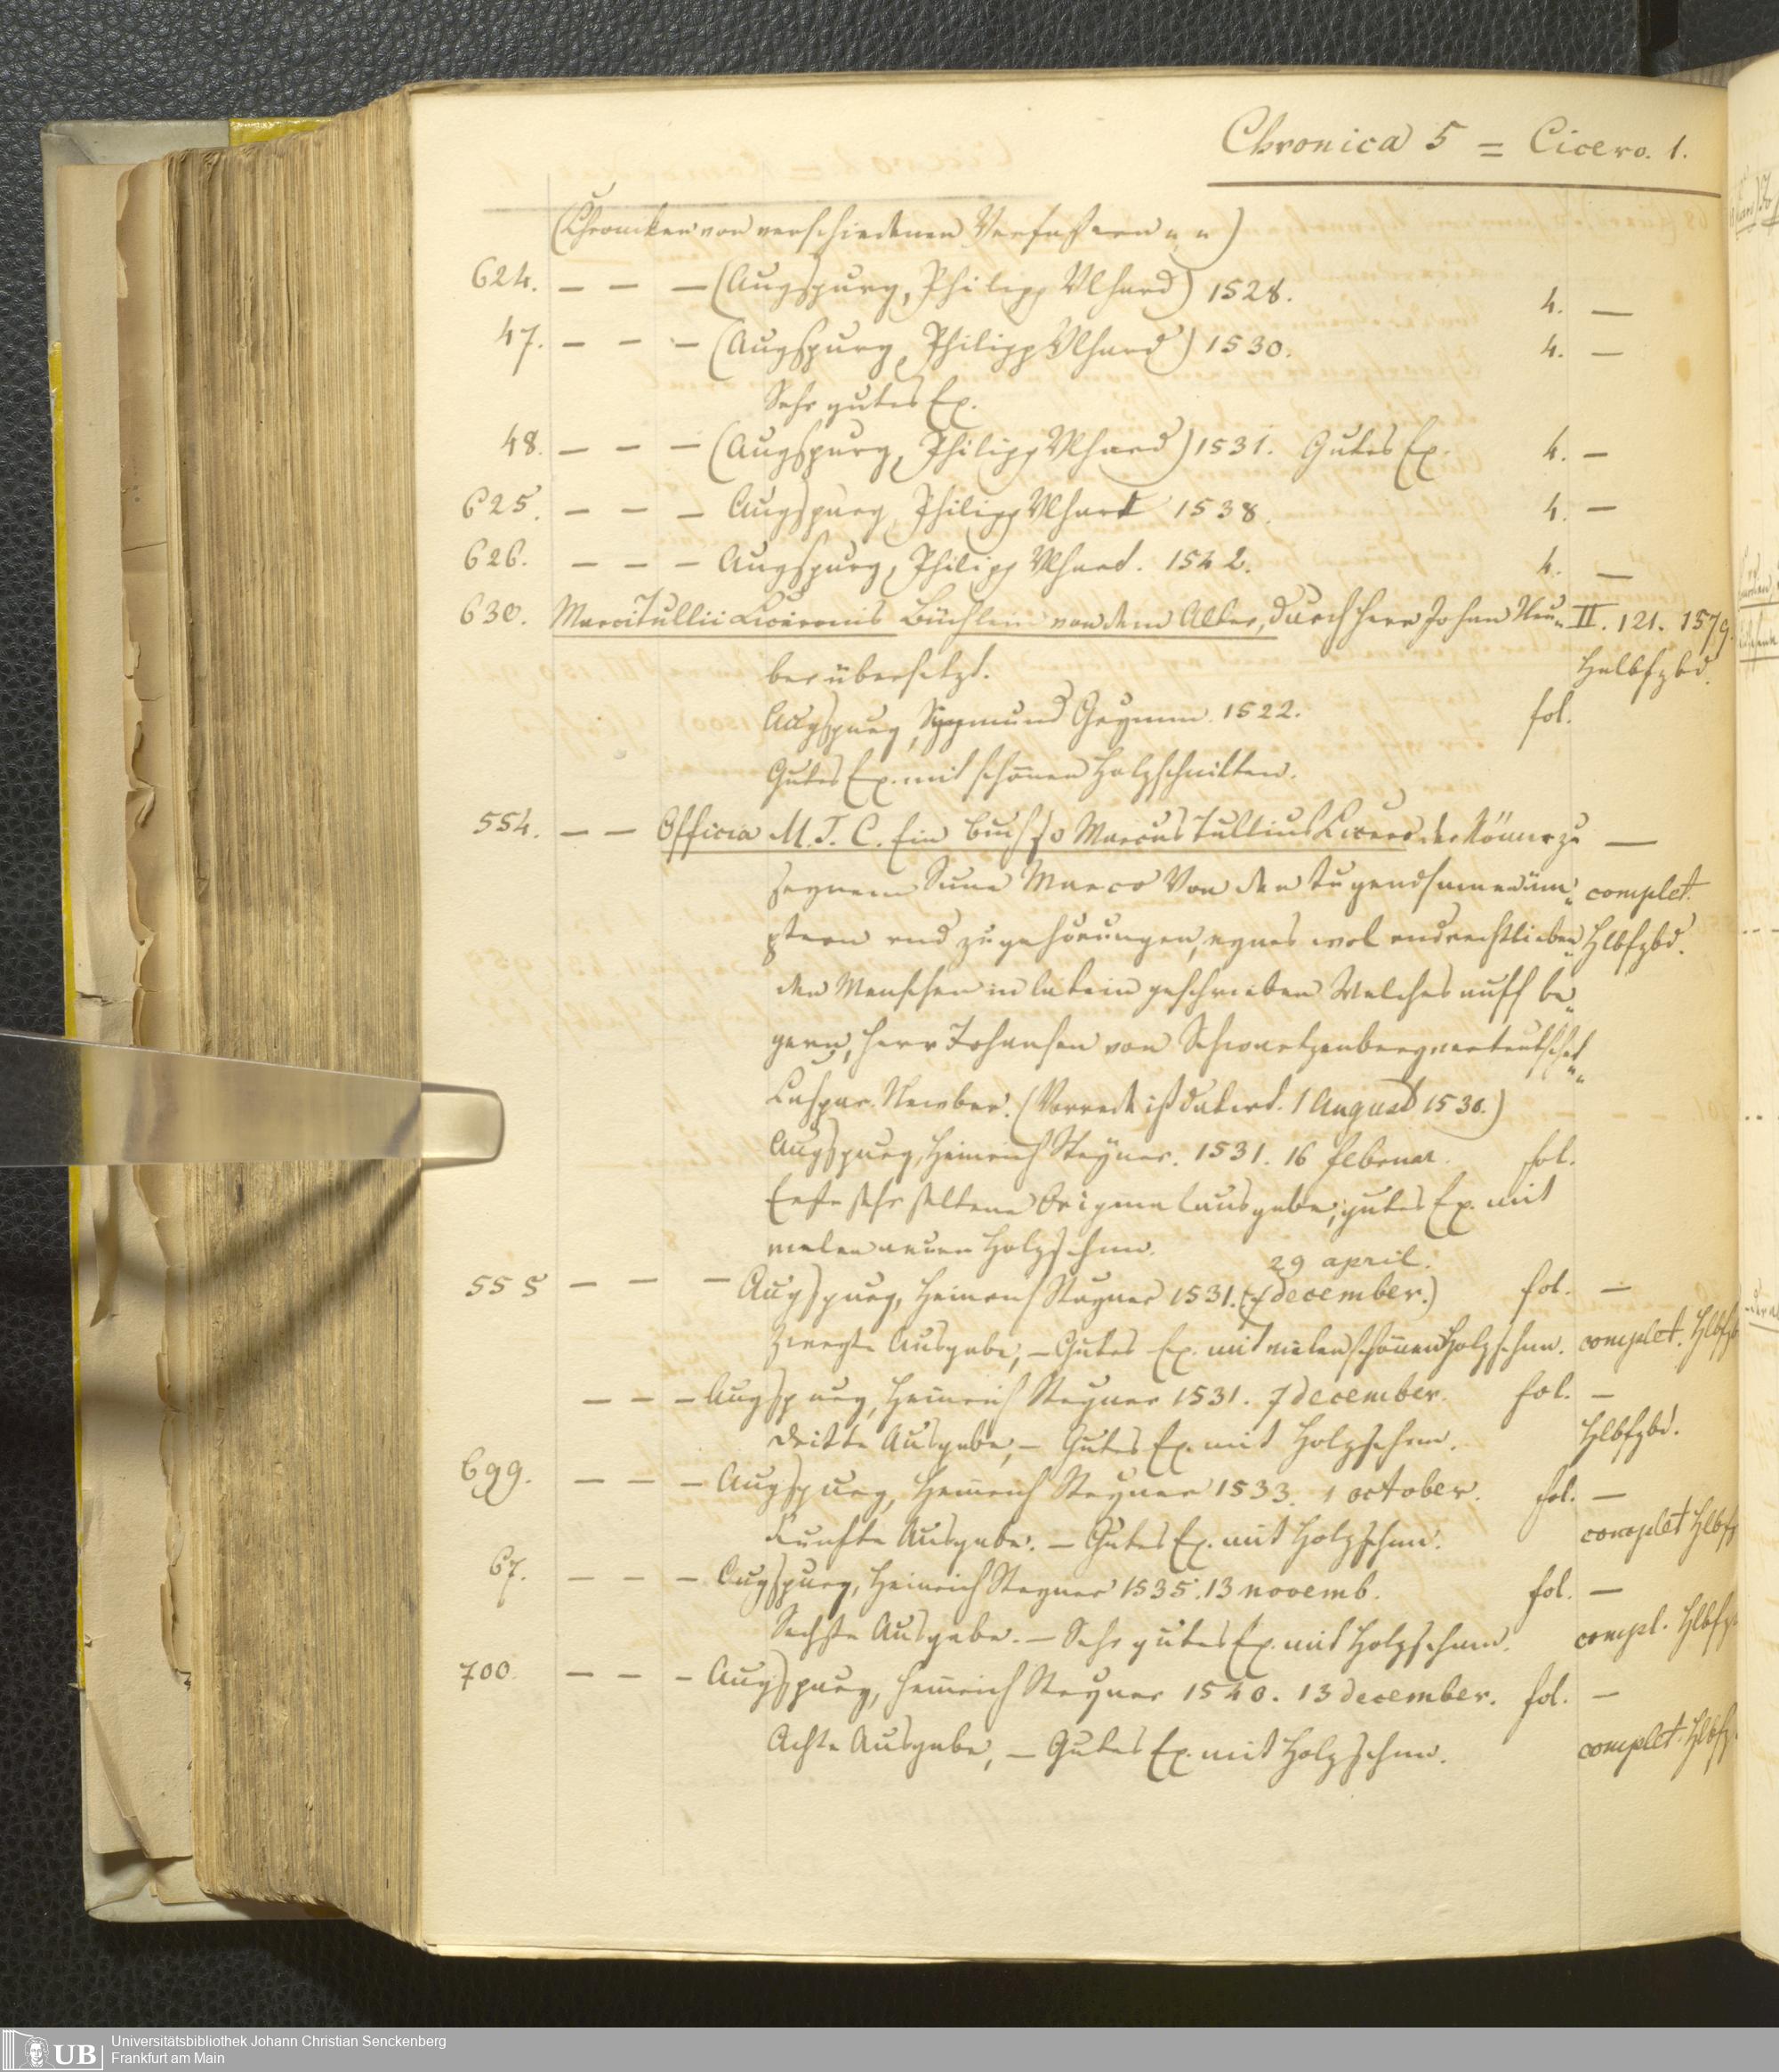 Chronica 5 = Cicero. 1.
(Chroniken von verschiedenen Verfassern " ")
624. — — — (Augspurg, Philipp Vlhard) 1528. 4. —
47. — — — (Augspurg, Philipp Vlhard) 1530. 4. —
Sehr gutes Ex.
48. — — — (Augspurg, Philipp Vlhard) 1531. Gutes Ex. 4. —
625. — — — Augspurg, Philipp Vlhart 1538. 4. —
626. — — — Augspurg, Philipp Vlhard. 1542. 4. —
630. Marci Tullii Ciceronis Büchlein von dem Alter, durch Herr Johan Neu- II. 121. 1579.
ber übersetzt. Halbfzbd.
Augspurg, Sygmund Grymm. 1522. fol.
Gutes Ex. mit schönen Holzschnitten.
554. — — Officia M. T. C. Ein buch so Marcus Tullius Cicero der Römer zu —
seynem Sune Marco Von den tugendsamen äm- complet.
ptern vnd zugehörungen, eynes wol vnd rechtlieben- Hlbfzbd.
den Menschen in latein geschrieben Welches auff be-
gern, Herr Johansen von Schwartzenberg verteutschet
Caspar. Newber. (Vorrede ist datirt. 1 August 1530.)
Augspurg, Heinrich Steyner. 1531. 16 februar. fol.
Erste sehr seltene Originalausgabe, gutes Ex. mit
vielen neuen Holzschnn.
29 april.
555 — — — Augspurg, Heinrich Steyner 1531. (7 december.) fol. —
Zweyte Ausgabe, — Gutes Ex. mit vielen schönen Holzschnn. complet. Hlbfzb
— — — Augspurg, Heinrich Steyner 1531. 7 december. fol. —
dritte Ausgabe, — Gutes Ex. mit Holzschnn. Hlbfzbd.
699. — — — Augspurg, Heinrich Steyner 1533. 1 october. fol. —
Funfte Ausgabe. — Gutes Ex. mit Holzschnn. complet Hlbfz
67. — — — Augspurg, Heinrich Steyner 1535. 13 novemb. fol. —
Sechste Ausgabe. — Sehr gutes Ex. mit Holzschnn. compl. Hlbfz
700. — — — Augspurg, Heinrich Steyner 1540. 13 december. fol. —
Achte Ausgabe, — Gutes Ex. mit Holzschnn. complet. Hlbfz
UB Universitätsbibliothek Johann Christian Senckenberg
Frankfurt am Main